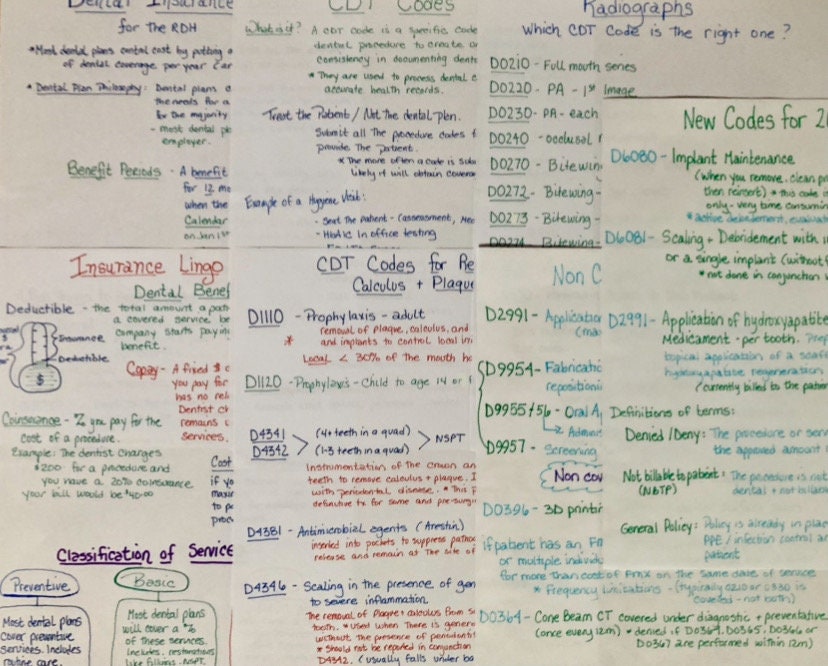 Dental Insurance
for the RDH
*Most dental plans control cost by putting a
of dental coverage per year (ar
* Dental Plan Philosophy: Dental plans a
the needs for a
for the majority
- most dental pl
employer.
Benefit Periods - A benefit
for 12 mo
when the
Calendar
on Jan 1st
Insurance Lingo
Dental Benef
Deductible - the total amount a pati
a covered service be
company starts payin
benefit.
Insurance
Deductible
$
Copay - A fixed $ c
you pay for
has no rel
Dentist ch
remains c
services.
Coinsurance - % you pay for the
cost of a procedure.
Example: The dentist charges
$200 for a procedure and
you have a 20% coinsurance
your bill would be $40.00
Cost
if yo
maxi
to p
proc
Classification of Service
Preventive
Most dental plans
cover preventive
services. Includes
routine care.
Basic
Most dental plans
will cover a %
of these services.
Includes. restorations
like fillings. NSPT.
CDT Codes
What is it? A CDT code is a specific code
dental procedure to create or
consistency in documenting dent
* They are used to process dental c
accurate health records.
Treat the Patient / Not the dental plan.
Submit all the procedure codes f
provide the patient.
* The more often a code is sub
likely it will obtain covera
Example of a Hygiene Visit:
- Seat the patient - (assessment, Med
- HbA1C in office testing
CDT Codes for Re
Calculus + Plaqu
D1110 - Prophylaxis - adult
removal of plaque, calculus, and
* and implants to control local irri
Local < 30% of the mouth ha
D1120 - Prophylaxis - Child to age 14 or
D4341 (4+ teeth in a quad)
D4342 (1-3 teeth in a quad) > NSPT
Instrumentation of the crown an
teeth to remove calculus + plaque. I
with periodontal disease. * This p
definitive tx for some and pre-surgi
D4381 - Antimicrobial agents (Arestin)
inserted into pockets to suppress patho
release and remain at the site of
D4346 - Scaling in the presence of gen
to severe inflammation
The removal of plaque + calculus from s
tooth. * used when there is genera
without the presence of periodonti
* Should not be reported in conjunction
D4342. (usually falls under ba
Radiographs
Which CDT Code is the right one?
D0210 - Full mouth series
D0220 - PA - 1st Image
D0230 - PA - each
D0240 - occlusal
D0270 - Bitewin
D0272 - Bitewing -
D0273 - Bitewing -
D0274 Bitewing-
Non C
D2991 - Applicatio
(ma
D9954 - Fabricatio
repositioni
D9955+56 - Oral A
Admini
D9957 - Screening
Non cov
D0396 - 3D printi
if patient has an FM
or multiple individu
for more than cost of FMX on the same date of service
* Frequency limitations - (typically 0210 or 0330 is
covered - not both)
D0364 - Cone Beam CT covered under diagnostic + preventative
(once every 12m) * denied if D0364, D0365, D0366 or
D0367 are performed within 12m)
New Codes for 2
D6080 - Implant Maintenance
(when you remove, clean pr
then reinsert) * this code i
only - very time consumin
* active debridement, evaluat
D6081 - Scaling + Debridement with i
or a single implant (without
* not done in conjunction
D2991 - Application of hydroxyapatite
Medicament - per tooth. Prep
topical application of a scaff
hydroxyapatite regeneration
(currently billed to the patien
Definitions of terms:
Denied/Deny: The procedure or serv
the approved amount
Not billable to patient: The procedure is not
(NBTP) dental + not billab
General Policy: Policy is already in plac
PPE / infection control ar
patient